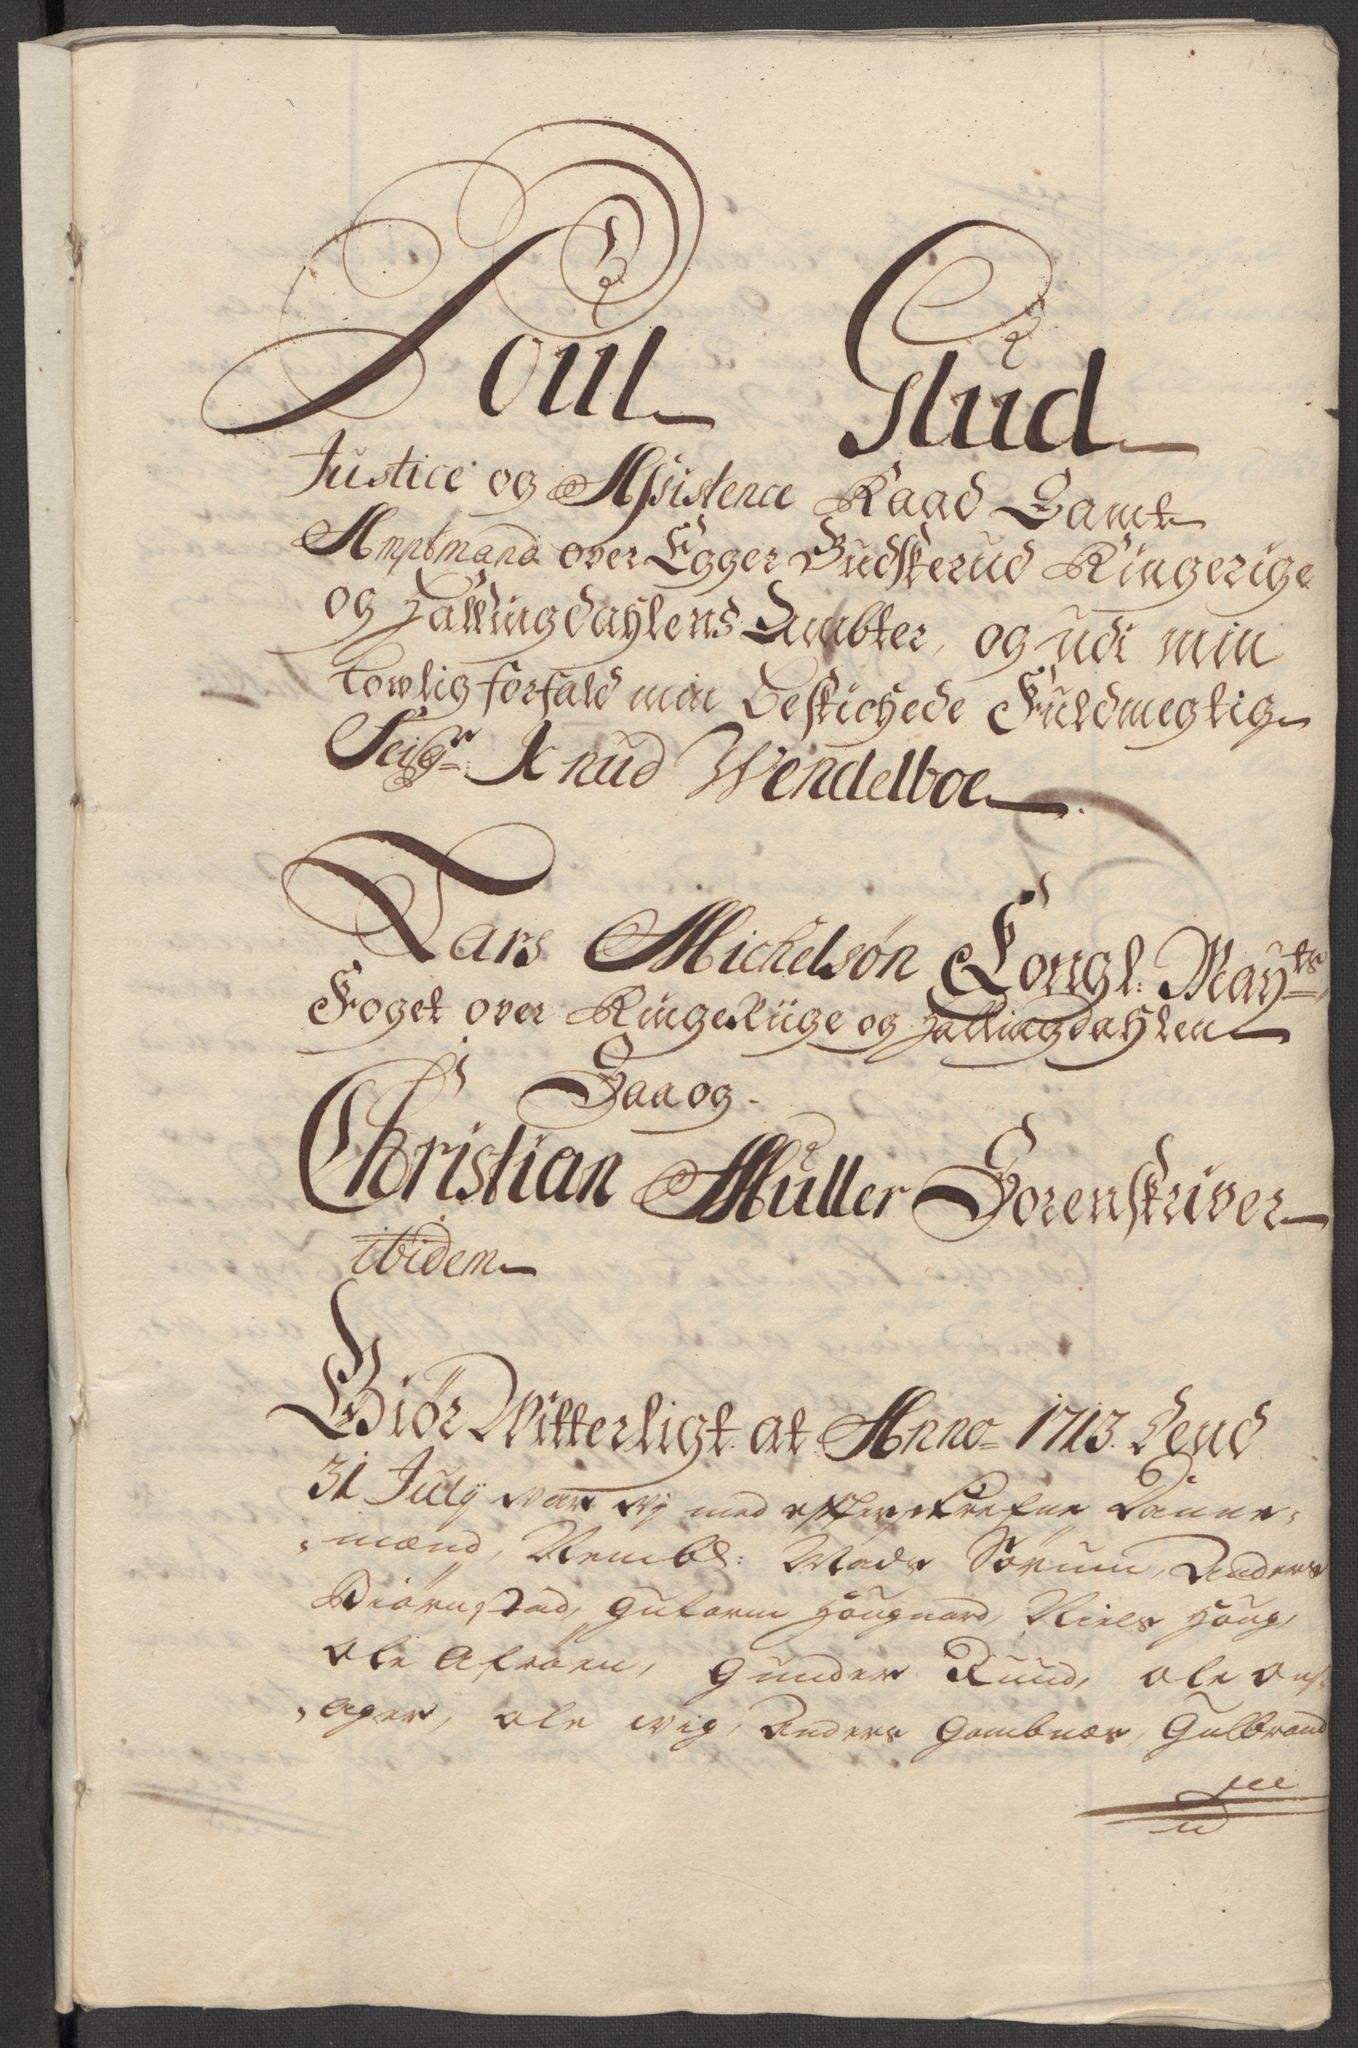 Poul Glud
Justice og Assistence Raad Samt
Amptmand over Egger Budskerud Ringerige
og Hallingdahlens Ambter, og udi min
lowlig forfald min beskichede Fuldmegtig
Seigr: Knud Wendelboe
Lars Michelsøn Kongl: Mayts
Foget over RingeRiige og Hallingdahlen
Saa og
Christian Muller Sorenskriver
ibidem
Giør Witterligt at Anno 1713 dend
31 July var vj med efterskrefne Danne-
mænd, Nembl: Mads Sørum, Anders
Biørnstad, Gutorm Hougaard, Niels Houg,
Ole Afraaen, Gunder Ruud, Ole Ons-
ager, Ole Wig, Anders Gombnæs, Gulbrand